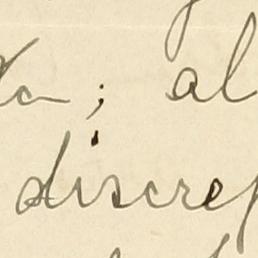 ; al
discrep